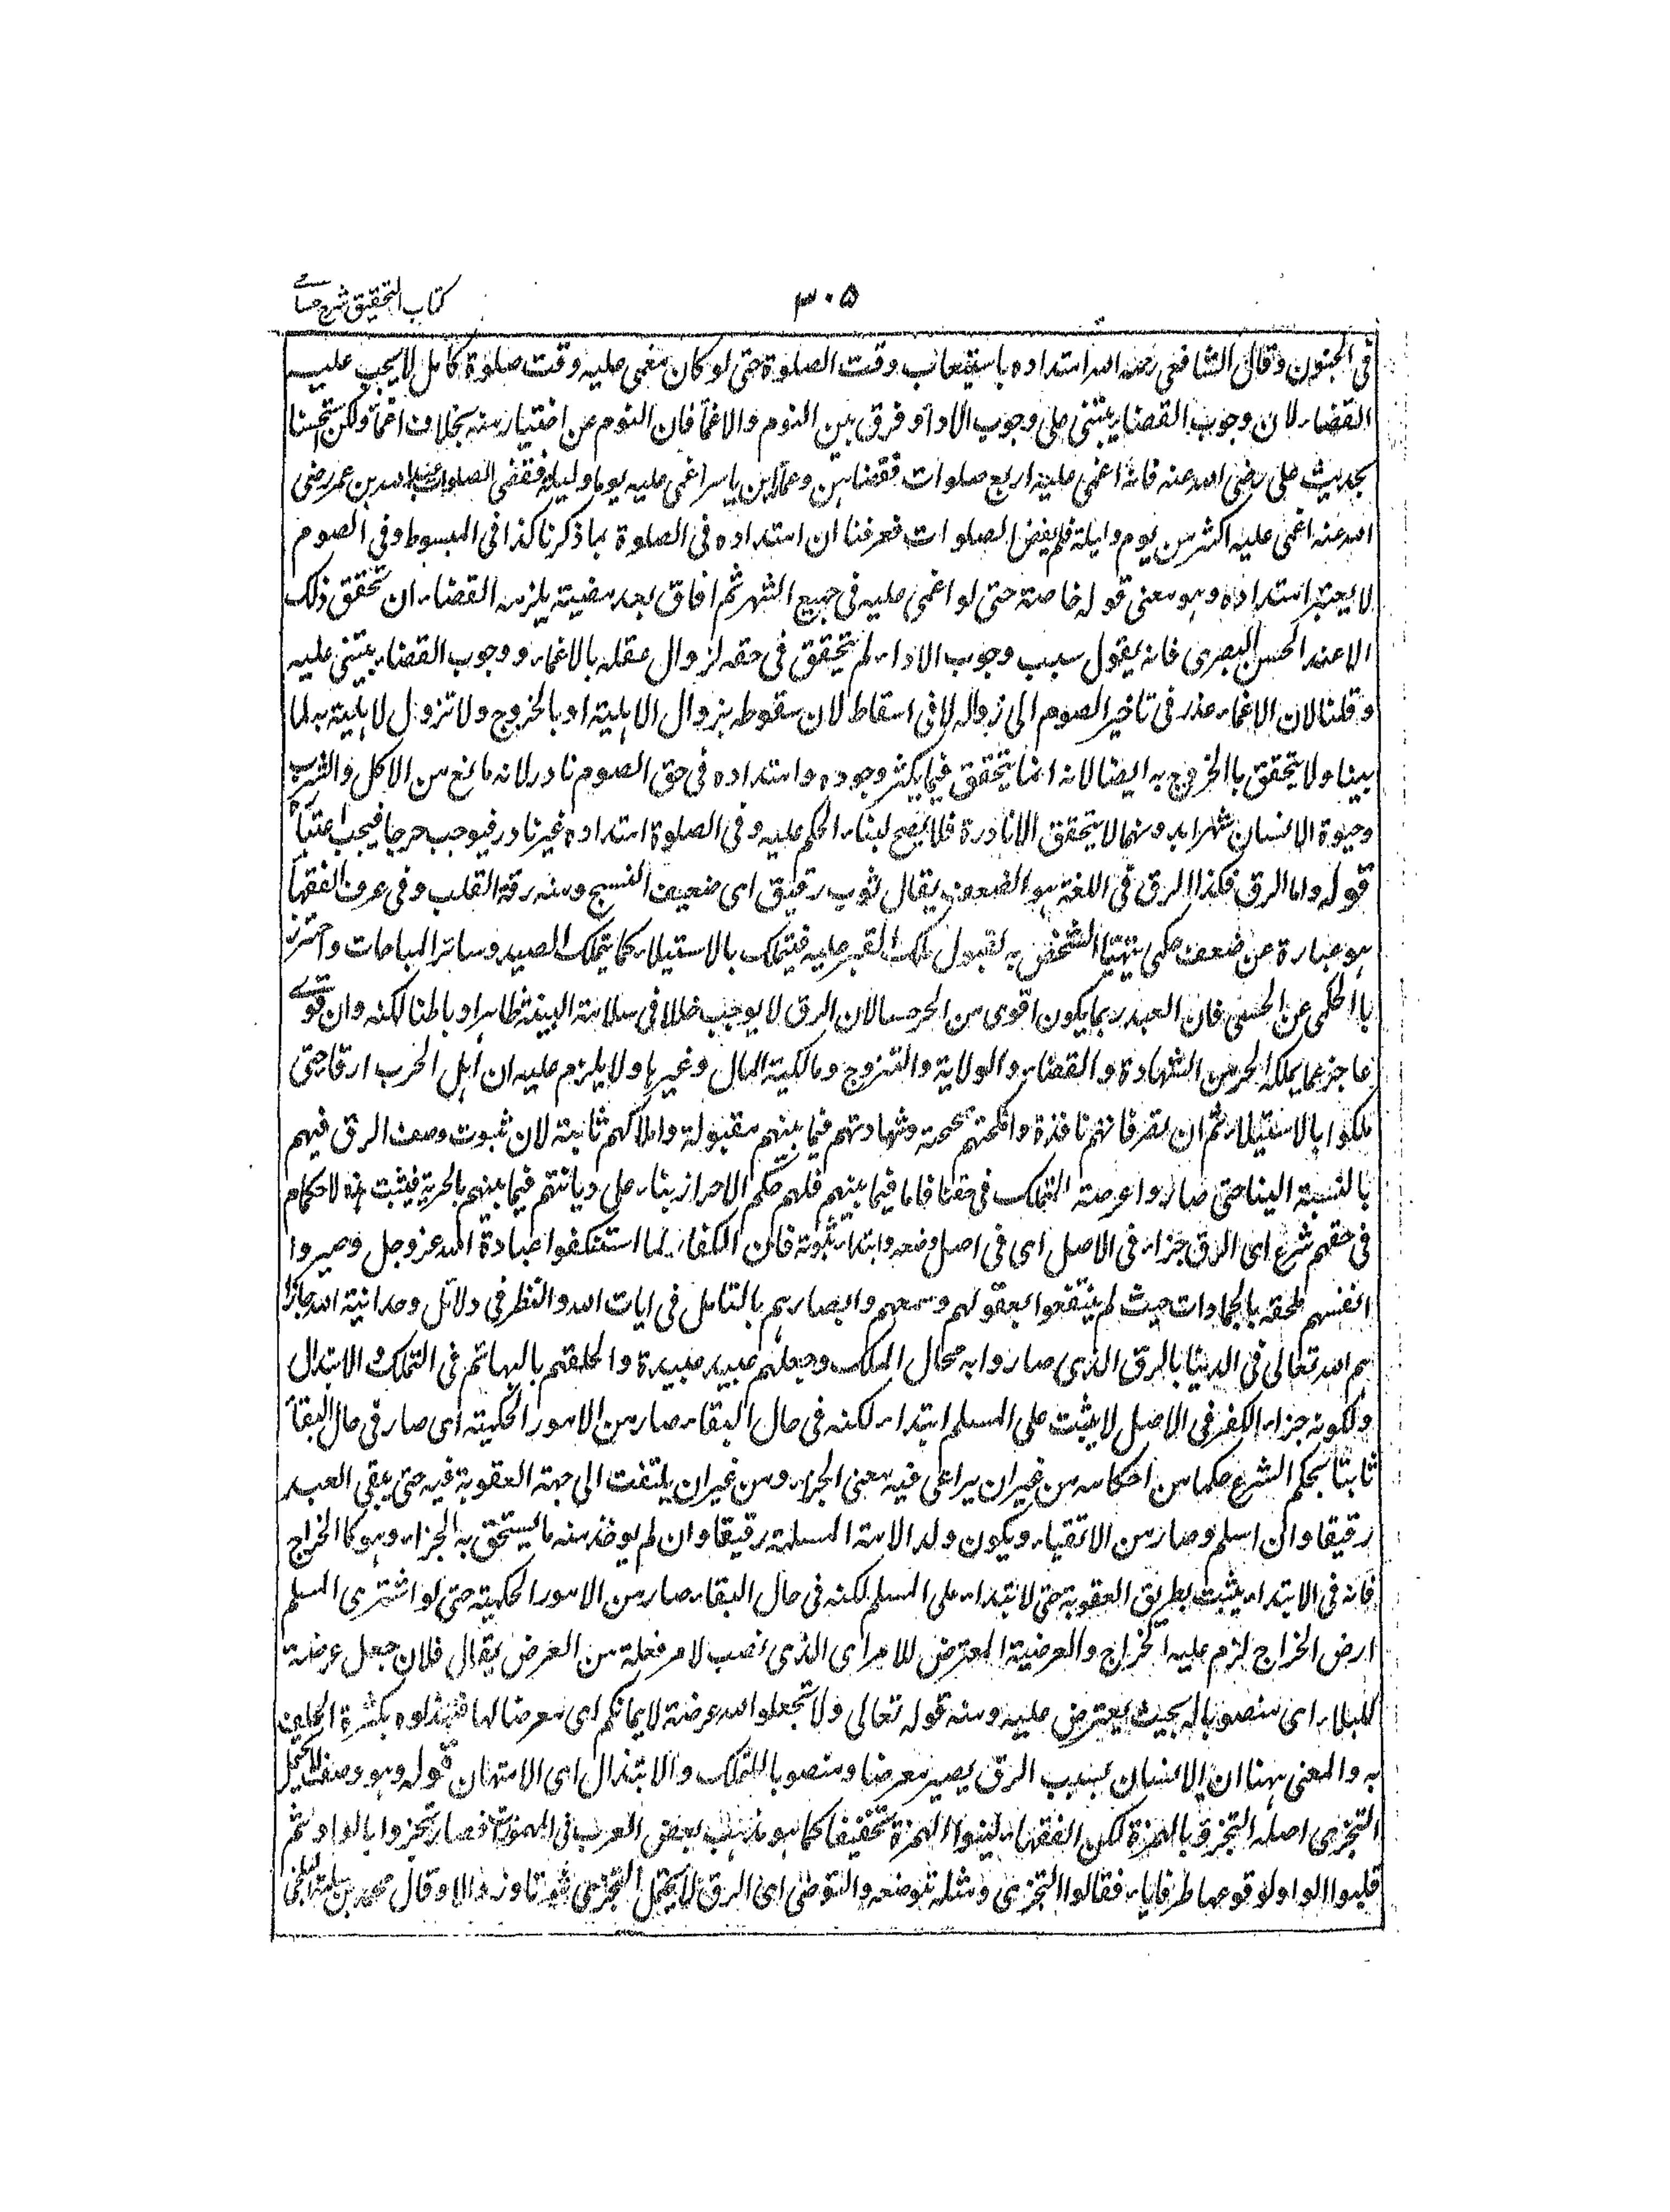 كتاب التحقيق شرح حسامے
٣٠٥
فى الجنون وقال الشافعى رحمه الله امتداده باستيعاب وقت الصلوة حتى لو كان مغمى عليه وقت صلوة كامل لا يجب عليه
القضاء لان وجوب القضاء يبتنى على وجوب الاداء وفرق بين النوم والاغماء فان النوم عن اختيار منه بخلاف اغماء ولكن استحسنا
بحديث على رضى الله عنه فانه اغمى عليه اربع صلوات فقضاهن وعمار بن ياسر اغمى عليه يوما وليلة فقضى الصلوات وعبد الله بن عمر رضى
الله عنه اغمى عليه اكثر من يوم وليلة فلم يقض الصلوات فعرفنا ان امتداده فى الصلوة بما ذكرنا كذا فى المبسوط وفى الصوم
لا يعتبر امتداده وهو معنى قوله خاصة حتى لو اغمى عليه فى جميع الشهر ثم افاق بعد مضيه يلزمه القضاء ان تحقق ذلك
الا عند الحسن البصرى فانه يقول سبب وجوب الاداء لم يتحقق فى حقه لزوال عقله بالاغماء ووجوب القضاء يبتنى عليه
وقلنا لان الاغماء عذر فى تاخير الصوم الى زواله لا فى اسقاط لان سقوطه بزوال الاهلية او بالحرج ولا تزول الاهلية به لما
بينا ولا يتحقق بالحرج به ايضا لانه انما يتحقق فيما يكثر وجوده وامتداده فى حق الصوم نادر لانه مانع من الاكل والشرب
وحيوة الانسان شهرا بدونهما لا يتحقق الا نادرة فلا يصح لبناء الحكم عليه وفى الصلوة امتداده غير نادر فيوجب حرجا فيجب اعتباره
قوله واما الرق فكذا الرق فى اللغة هو الضعف يقال ثوب رقيق اى ضعيف النسيج ومنه رقة القلب وفى عرف الفقهاء
هو عبارة عن ضعف حكمى يتهيأ الشخص به لقبول ملك الغير عليه فيتملك بالاستيلاء كما يتملك الصيد وسائر المباحات واحترز
بالحكمى عن الحسى فان العبد ربما يكون اقوى من الحر حسا لان الرق لا يوجب خللا فى سلامة البينة ظاهرا وباطنا لكنه وان قوے
عاجز عما يملكه الحر من الشهادة والقضاء والولاية والتزوج ومالكية المال وغيرها ولا يلزم عليه ان اهل الحرب ارقا حتى
ملكوا بالاستيلاء ثم ان تصرفاتهم نافذة وانكحتهم صحيحة وشهادتهم فيما بينهم مقبولة واملاكهم ثابتة لان ثبوت وصف الرق فيهم
بالنسبة الينا حتى صاروا عرضة التملك فى حقنا فاما فيما بينهم فلهم حكم الاحرار بناء على ديانتهم فيما بينهم بالحرية فيثبت هذه الاحكام
فى حقهم شرع اى الرق جزاء فى الاصل اى فى اصل وضعه وابتداء ثبوته فان الكفار لما استنكفوا عبادة الله عز وجل وصيروا
انفسهم ملحقة بالجمادات حيث لم ينتفعوا بعقولهم وسمعهم وابصارهم بالتامل فى ايات الله والنظر فى دلائل وحدانية الله جازا
هم الله تعالى فى الدنيا بالرق الذى صاروا به محال الملك وجعلهم عبيد عبيده والحقهم بالبهائم فى التملك والابتذال
ولكونه جزاء الكفر فى الاصل لا يثبت على المسلم ابتداء لكنه فى حال البقاء صار من الامور الحكمية اى صار فى حال البقاء
ثابتا بحكم الشرع حكما من احكامه من غير ان يراعى فيه معنى الجزاء ومن غير ان يلتفت الى جهة العقوبة فيه حتى يبقى العبد
رقيقا وان اسلم وصار من الاتقياء ويكون ولد الامة المسلمة رقيقا وان لم يوجد منه ما يستحق به الجزاء وهو كالخراج
فانه فى الابتداء يثبت بطريق العقوبة حتى لا يبتداء على المسلم لكنه فى حال البقاء صار من الامور الحكمية حتى لو اشترى المسلم
ارض الخراج لزم عليه الخراج والعرضة المعترض للامر اى الذى نصب لامر فعلة من العرض يقال فلان جعل عرضة
للبلاء اى منصوبا له بحيث يعترض عليه ومنه قوله تعالى ولا تجعلوا الله عرضة لايمانكم اى معرضا لها فتبتذلوه بكثرة الحلف
به والمعنى ههنا ان الانسان بسبب الرق يصير معرضا ومنصوبا للتملك والابتذال اى الامتهان قوله وهو وصف لا يحتمل
التجزى اصله التجزؤ بالهمزة لكن الفقهاء لينوا الهمزة تخفيفا كما هو مذهب بعض العرب فى المهموز فصار تجزوا بالواو ثم
قلبوا الواو لوقوعها طرفا ياء فقالوا التجزى ومثله توضع والتوضى اى الرق لا يحتمل التجزى ثبوتا وزوالا وقال محمد بن سلمة البلخى